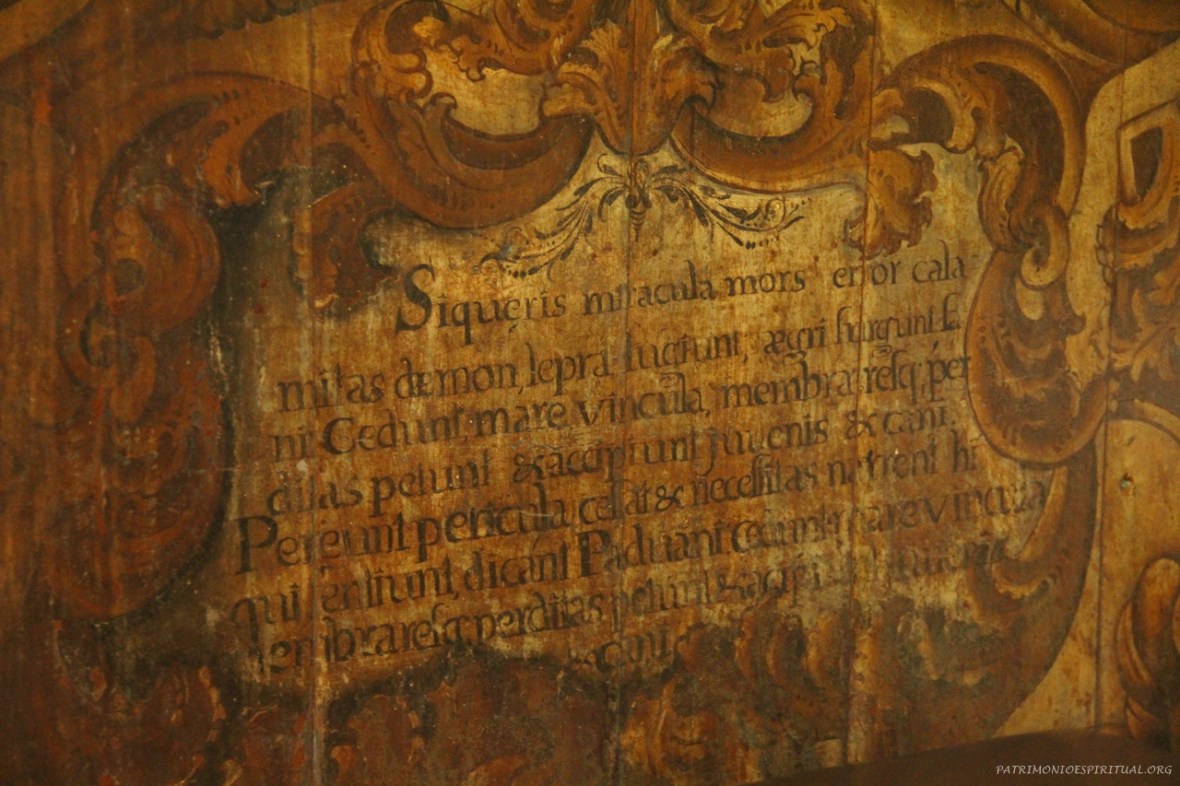 Siquęris miracula mors error cala
mitas dæmon, lepra fugiunt, ægri surgunt sa
ni Cedunt, mare, vincula, membra, resq; per
ditas petunt &accipiunt juvenis &cani.
Pereunt pericula cessat & necessitas narrent hi
qui sentiunt, dicant Paduani cedunt mare vincula
embra resq; perditas petunt &accipiunt juvenis
&cani
PATRIMONIOESPIRITUAL.ORG